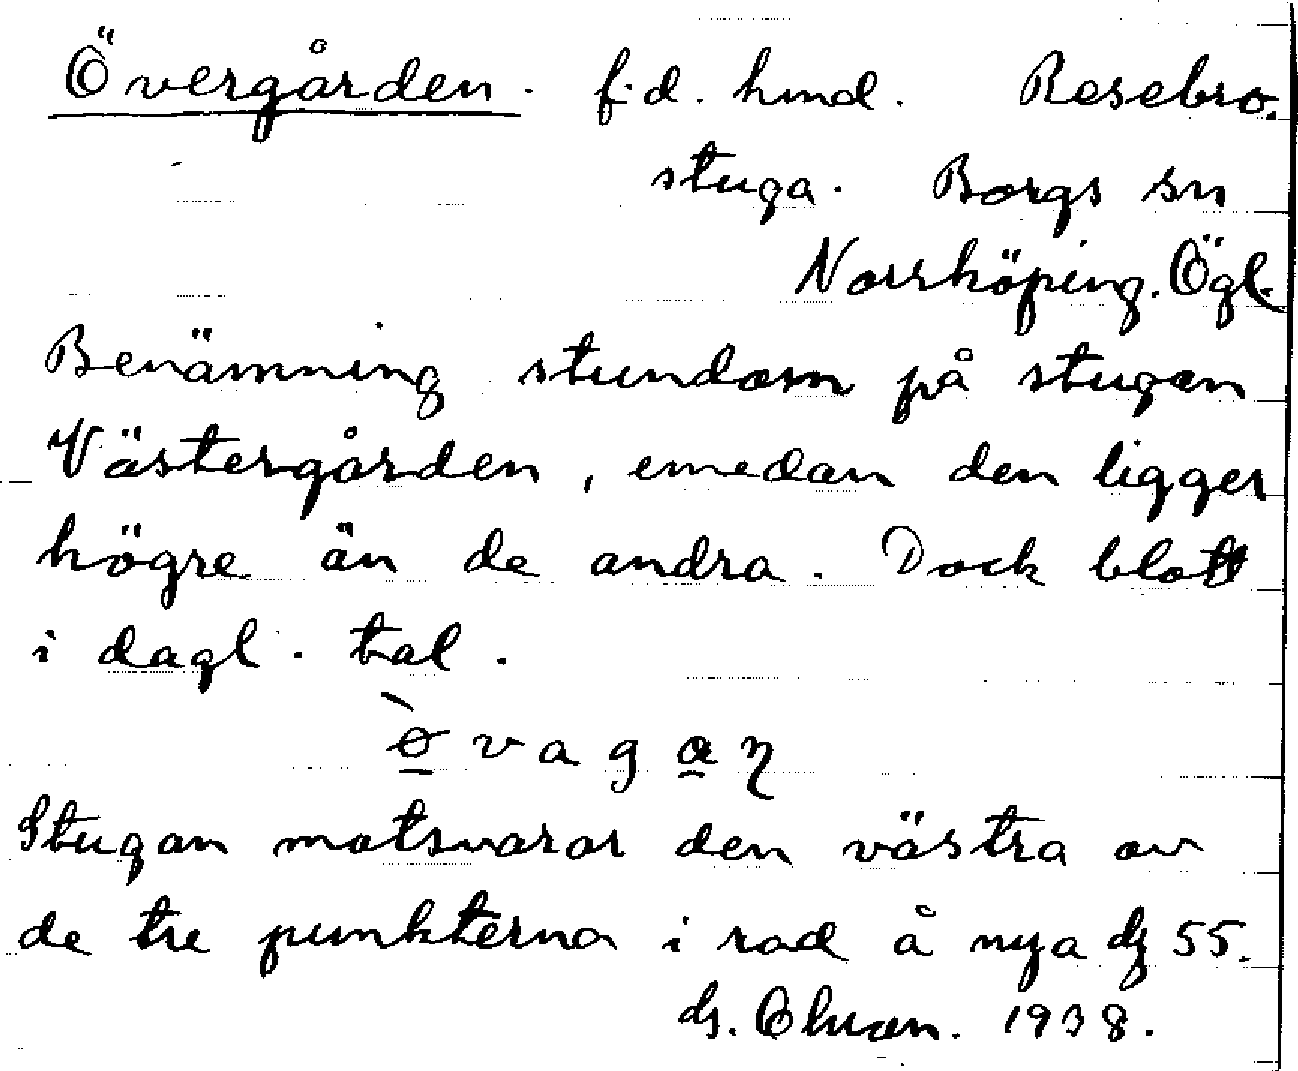 Övergården. f.d. hmd. Resebro.
stuga. Borgs sn
Norrköping. Ögl.
Benämning stundom på stugan
Västergården, emedan den ligger
högre än de andra. Dock blott
i dagl. tal.
v a g a
Stugan motsvarar den västra av
de tre punkterna i rad å nya 55.
1938.